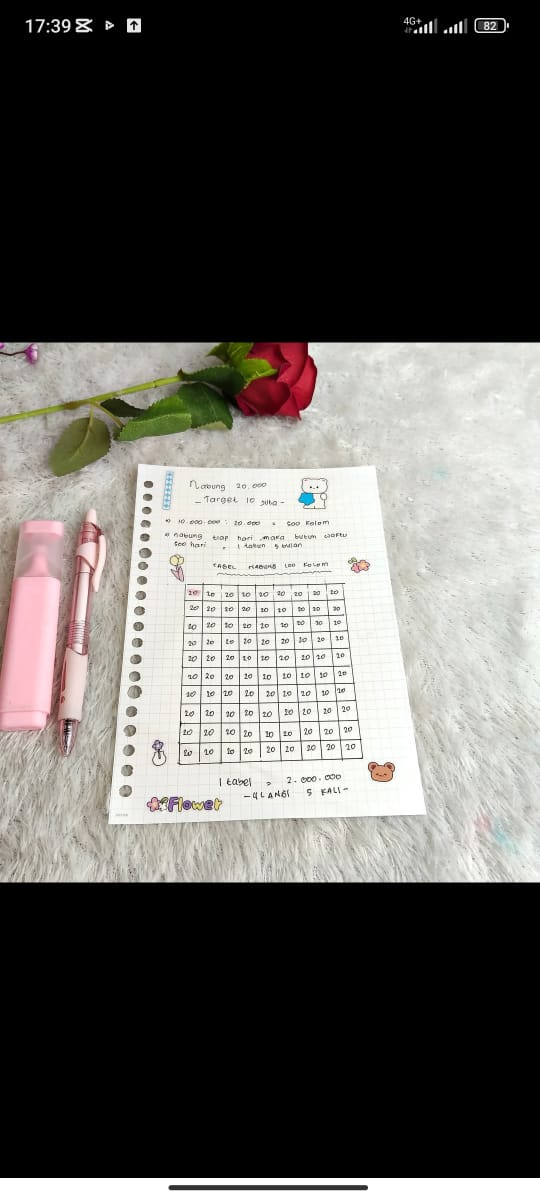 17:39
4G+
82
Nabung 20.000
- Target 10 juta -
10.000.000 : 20.000 = 500 kolom
nabung tiap hari, maka butuh waktu
500 hari = 1 tahun 5 bulan
TABEL NABUNG 100 KOLOM
20 20 20 20 20 20 20 20 20
20 20 20 20 20 20 20 20 20
20 20 20 20 20 20 20 20 20
20 20 20 20 20 20 20 20 20
20 20 20 20 20 20 20 20 20
20 20 20 20 20 20 20 20 20
20 20 20 20 20 20 20 20 20
20 20 20 20 20 20 20 20 20
20 20 20 20 20 20 20 20 20
20 20 20 20 20 20 20 20 20
1 tabel = 2.000.000
-ULANGI 5 KALI-
Flower